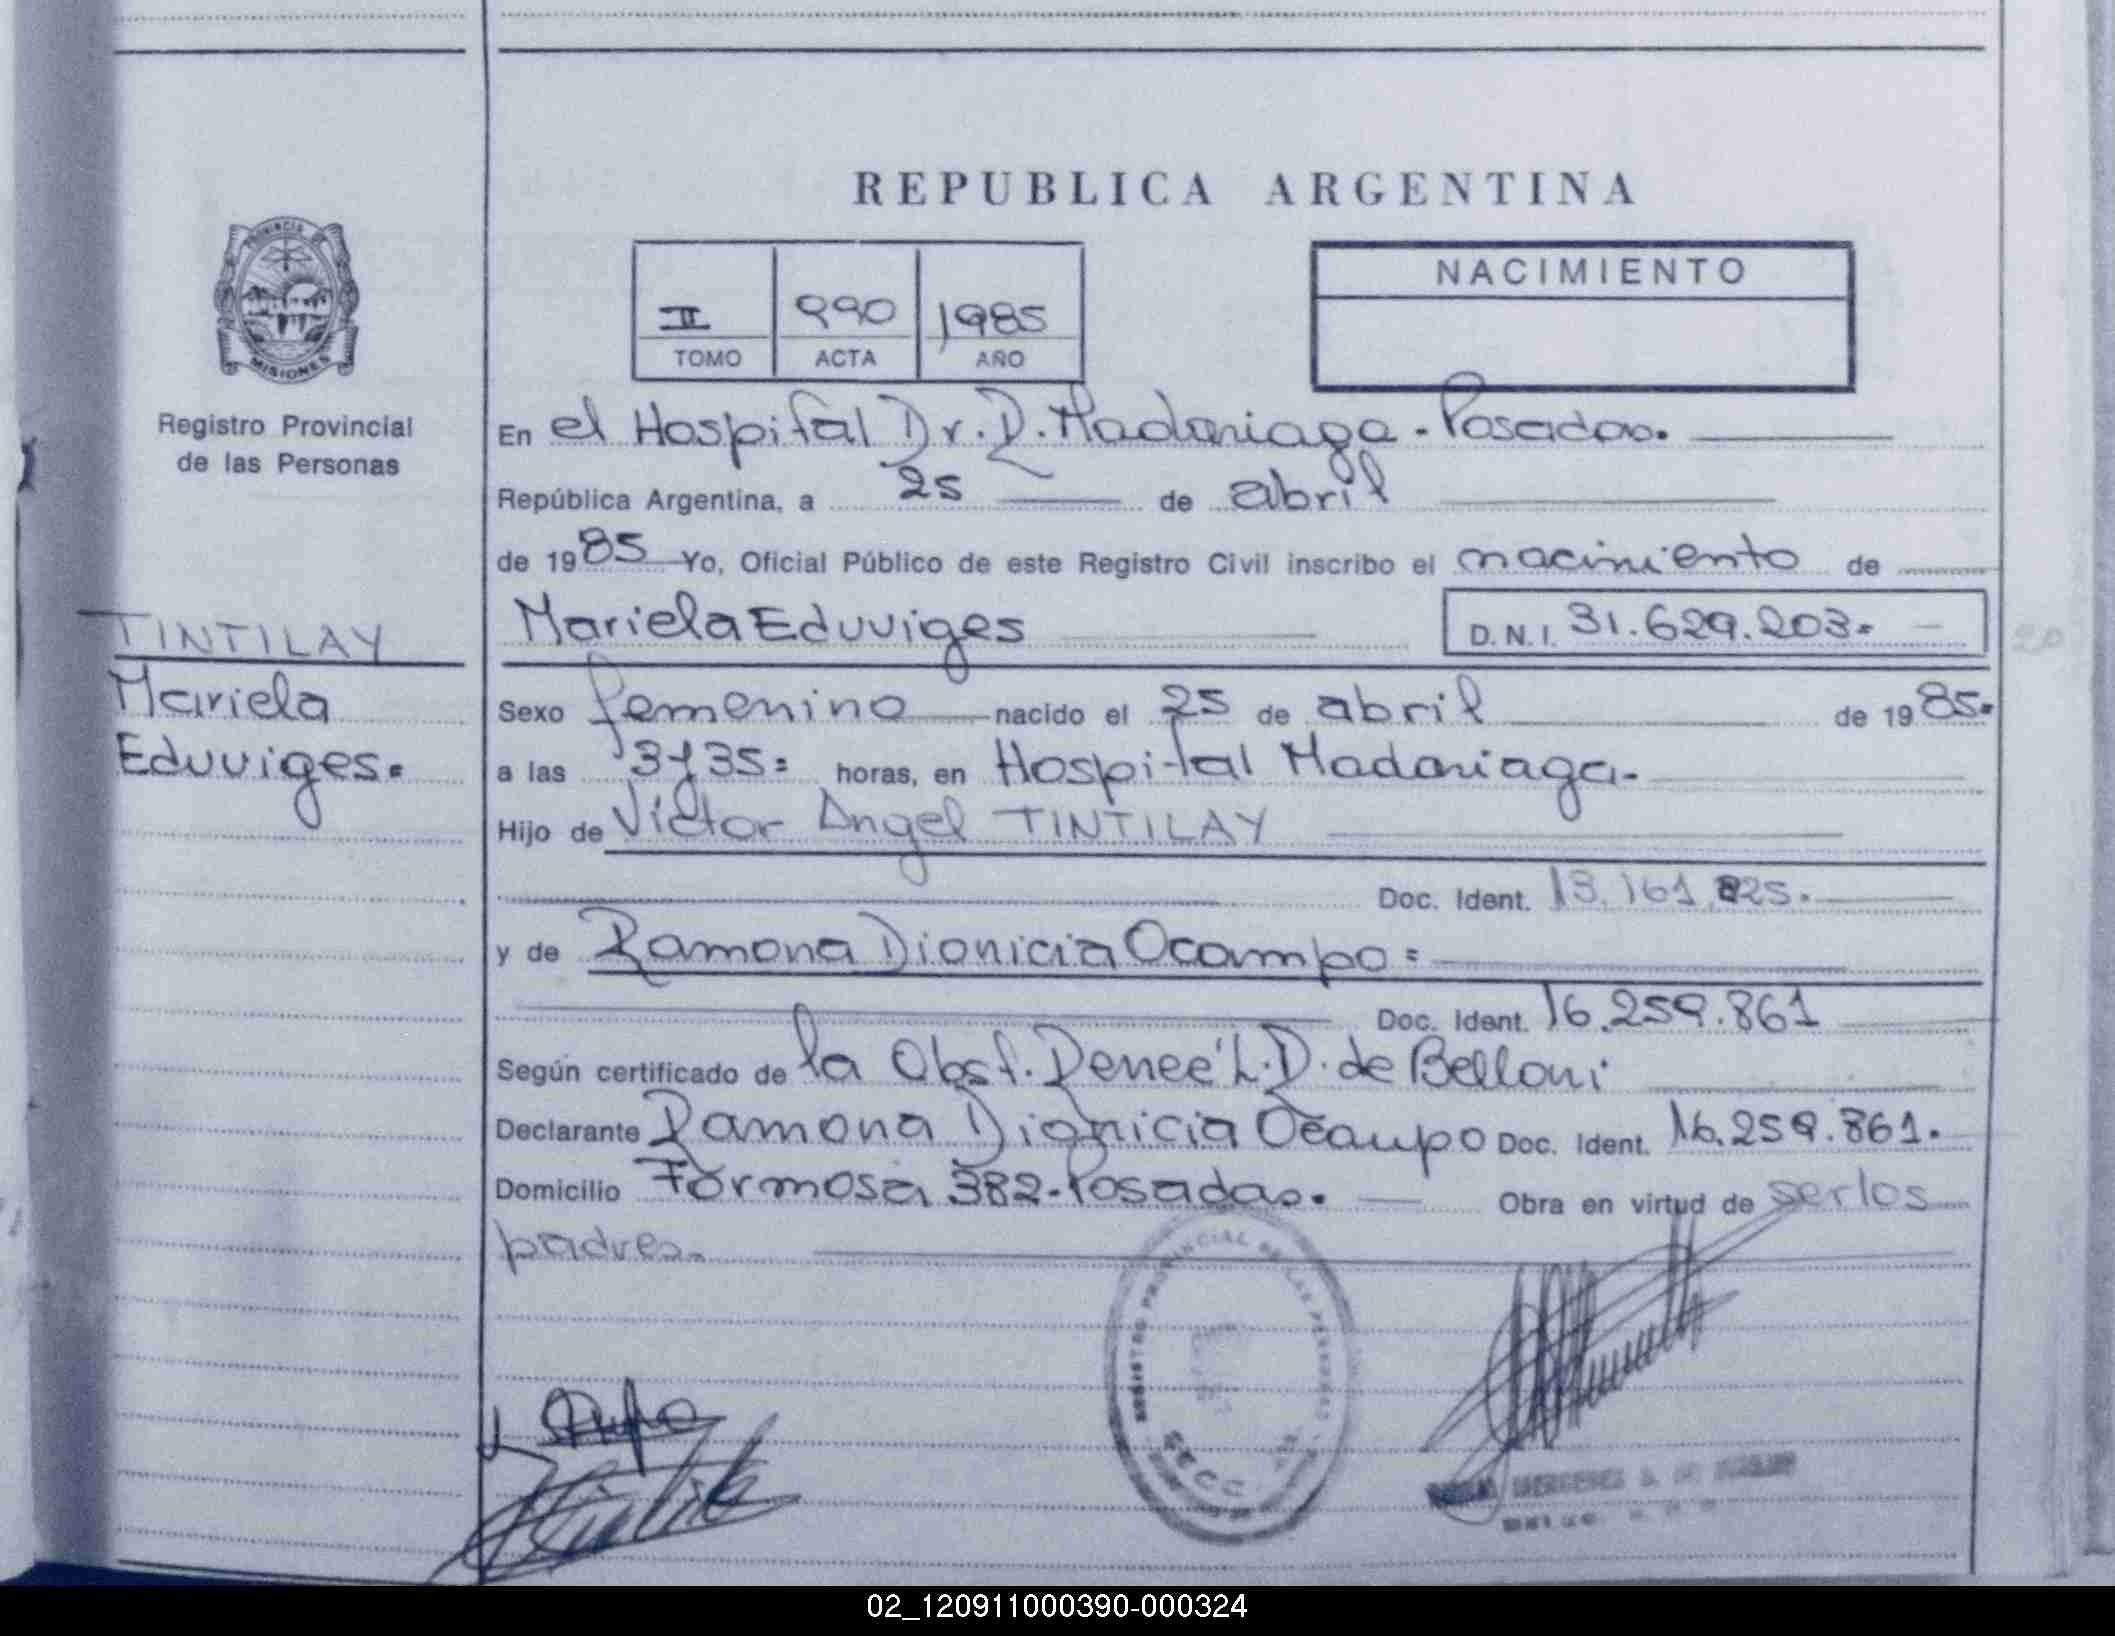 REPUBLICA ARGENTINA
PROVINCIA DE
MISIONES
Registro Provincial
de las Personas
II 990 1985
TOMO ACTA AÑO
NACIMIENTO
En el Hospital Dr. R. Madariaga - Posadas.
República Argentina, a 25 de abril
de 1985 Yo, Oficial Público de este Registro Civil inscribo el nacimiento de
Mariela Eduviges D.N.I. 31.629.203=
TINTILAY
Mariela
Eduviges=
Sexo femenino nacido el 25 de abril de 1985=
a las 3y35= horas, en Hospital Madariaga.
Hijo de Víctor Angel TINTILAY
Doc. Ident. 13.161.825.
y de Ramona Dionicia Ocampo=
Doc. Ident. 16.259.861
Según certificado de la Obst. Reneé L.D. de Belloni
Declarante Ramona Dionicia Ocampo Doc. Ident. 16.259.861.
Domicilio Formosa 382-Posadas. Obra en virtud de ser los
padres.
REGISTRO PROVINCIAL DE LAS PERSONAS
SECC
02_120911000390-000324